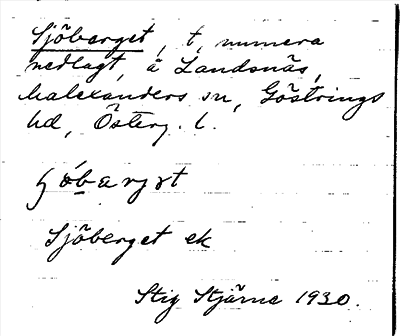 Sjöberget, t, numera
nedlagt, å Landsnäs,
Malexanders sn, Göstrings
hd, Österg. l.
Sjöberget ek
Stig Stjärne 1930.